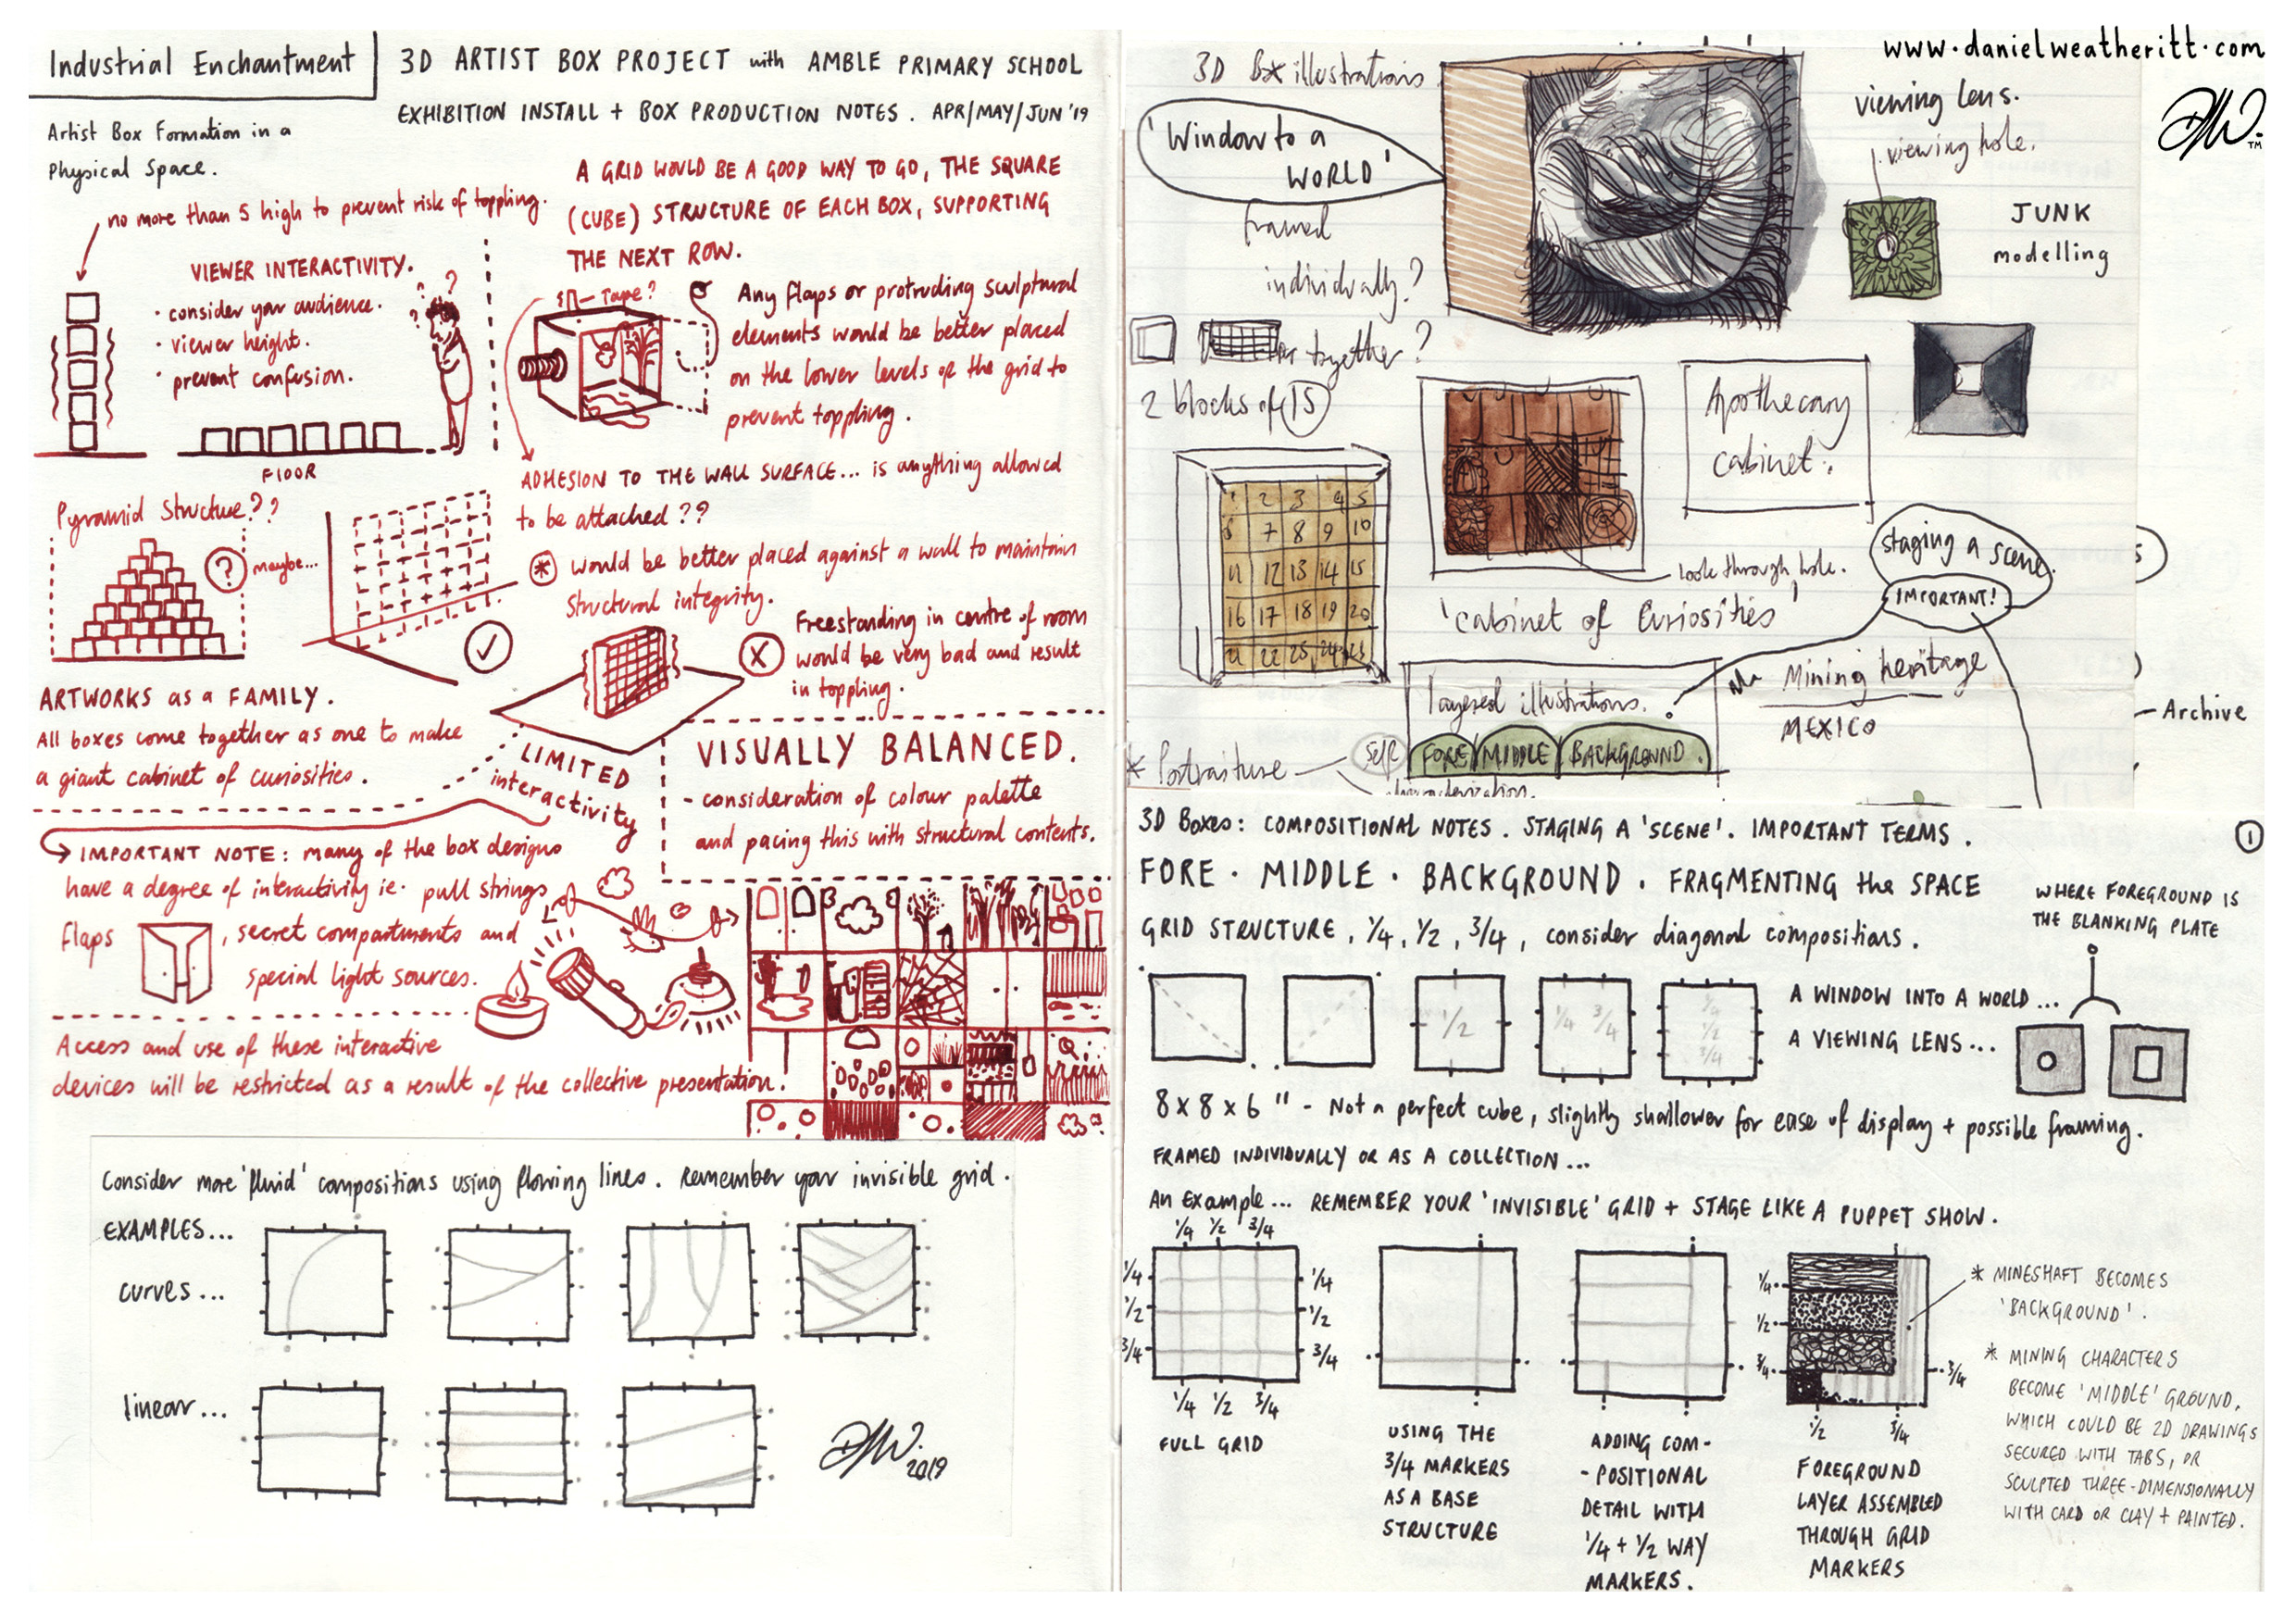 Industrial Enchantment
3D ARTIST BOX PROJECT with AMBLE PRIMARY SCHOOL
EXHIBITION INSTALL + BOX PRODUCTION NOTES. APR/MAY/JUN '19
Artist Box Formation in a
Physical Space.
no more than 5 high to prevent risk of toppling.
A GRID WOULD BE A GOOD WAY TO GO, THE SQUARE
(CUBE) STRUCTURE OF EACH BOX, SUPPORTING
THE NEXT ROW.
VIEWER INTERACTIVITY.
· consider your audience.
· viewer height.
· prevent confusion.
? ? ?
FLOOR
Tape?
Any flaps or protruding sculptural
elements would be better placed
on the lower levels of the grid to
prevent toppling.
ADHESION TO THE WALL SURFACE... is anything allowed
to be attached??
Pyramid Structure??
?
maybe...
* would be better placed against a wall to maintain
structural integrity.
Freestanding in centre of room
would be very bad and result
in toppling.
X
ARTWORKS as a FAMILY.
All boxes come together as one to make
a giant cabinet of curiosities.
LIMITED
interactivity
VISUALLY BALANCED.
- consideration of colour palette
and pacing this with structural contents.
IMPORTANT NOTE: many of the box designs
have a degree of interactivity ie. pull strings,
flaps , secret compartments and
special light sources.
Access and use of these interactive
devices will be restricted as a result of the collective presentation.
Consider more 'fluid' compositions using flowing lines. Remember your invisible grid.
EXAMPLES...
curves...
linear...
DW. 2019
www.danielweatheritt.com
DW.™
3D Box illustrations
'Window to a
WORLD'
framed
individually?
or together?
2 blocks of 15
viewing lens.
viewing hole.
JUNK
modelling
Apothecary
cabinet.
1 2 3 4 5
6 7 8 9 10
11 12 13 14 15
16 17 18 19 20
21 22 23 24 25
look through hole.
'cabinet of Curiosities'
staging a scene.
IMPORTANT!
Mining heritage
MEXICO
Archive
layered illustrations.
FORE MIDDLE BACKGROUND.
* Portraiture
Self
characterization.
3D Boxes: COMPOSITIONAL NOTES. STAGING A 'SCENE'. IMPORTANT TERMS.
1
FORE · MIDDLE · BACKGROUND. FRAGMENTING the SPACE
GRID STRUCTURE, 1/4, 1/2, 3/4, consider diagonal compositions.
WHERE FOREGROUND IS
THE BLANKING PLATE
1/2
1/4 3/4
1/4
1/2
3/4
A WINDOW INTO A WORLD...
A VIEWING LENS...
8 x 8 x 6" - Not a perfect cube, slightly shallower for ease of display + possible framing.
FRAMED INDIVIDUALLY OR AS A COLLECTION...
An Example... REMEMBER YOUR 'INVISIBLE' GRID + STAGE LIKE A PUPPET SHOW.
1/4 1/2 3/4
1/4 1/4
1/2 1/2
3/4 3/4
1/4 1/2 3/4
FULL GRID
USING THE
3/4 MARKERS
AS A BASE
STRUCTURE
ADDING COM-
-POSITIONAL
DETAIL WITH
1/4 + 1/2 WAY
MARKERS.
1/4
1/2
3/4 3/4
1/2 3/4
FOREGROUND
LAYER ASSEMBLED
THROUGH GRID
MARKERS
* MINESHAFT BECOMES
'BACKGROUND'.
* MINING CHARACTERS
BECOME 'MIDDLE' GROUND,
WHICH COULD BE 2D DRAWINGS
SECURED WITH TABS, OR
SCULPTED THREE-DIMENSIONALLY
WITH CARD OR CLAY + PAINTED.